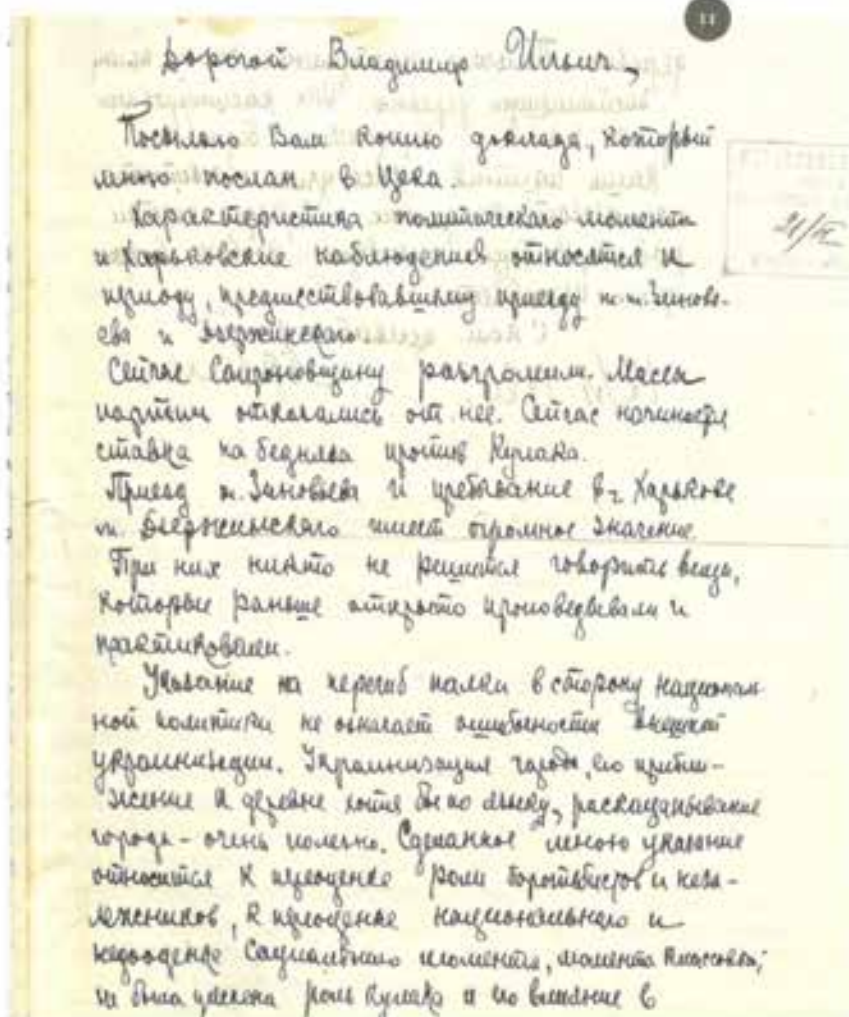 11
Дорогой Владимир Ильич,
Посылаю Вам копию доклада, который
мною послан в Цека.
Характеристика политического момента
и Харьковские наблюдения относятся к
периоду, предшествовавшему приезду т.т. Зиновь-
ева и Дзержинского.
Сейчас Сапроновщину разгромили. Массы
партии откололись от нее. Сейчас начинается
ставка на бедняка против кулака.
Приезд т. Зиновьева и пребывание в г. Харькове
т. Дзержинского имеет огромное значение.
При них никто не решится говорить вещи,
которые раньше открыто проповедывали и
практиковали.
Указание на перегиб палки в сторону националь
ной политики не означает ошибочности
украинизации. Украинизация города, его прибли-
жение к деревне хотя бы по языку, раскацапывание
города - очень полезно. Сделанное мною указание
относится к переоценке роли боротьбистов и неза-
лежников, к переоценке национального и
недооценке социального момента, момента классового;
не была учтена роль кулака и его влияние в